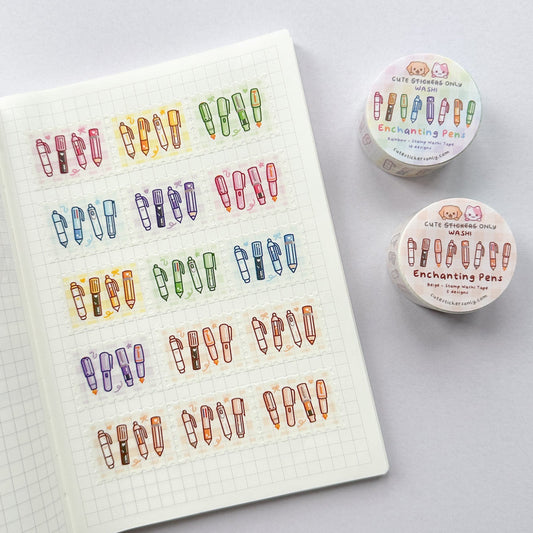 CUTE STICKERS ONLY
WASHI
Enchanting Pens
Rainbow - Stamp Washi Tape
12 designs
cutestickersonly.com
CUTE STICKERS ONLY
WASHI
Enchanting Pens
Beige - Stamp Washi Tape
6 designs
cutestickersonly.com